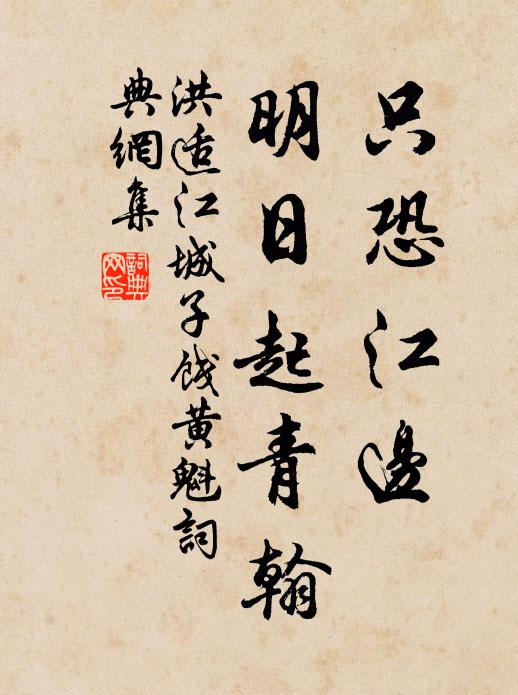 只恐江邊
明日起青翰
洪适江城子餞黄魁詞
典網集
詞典網印